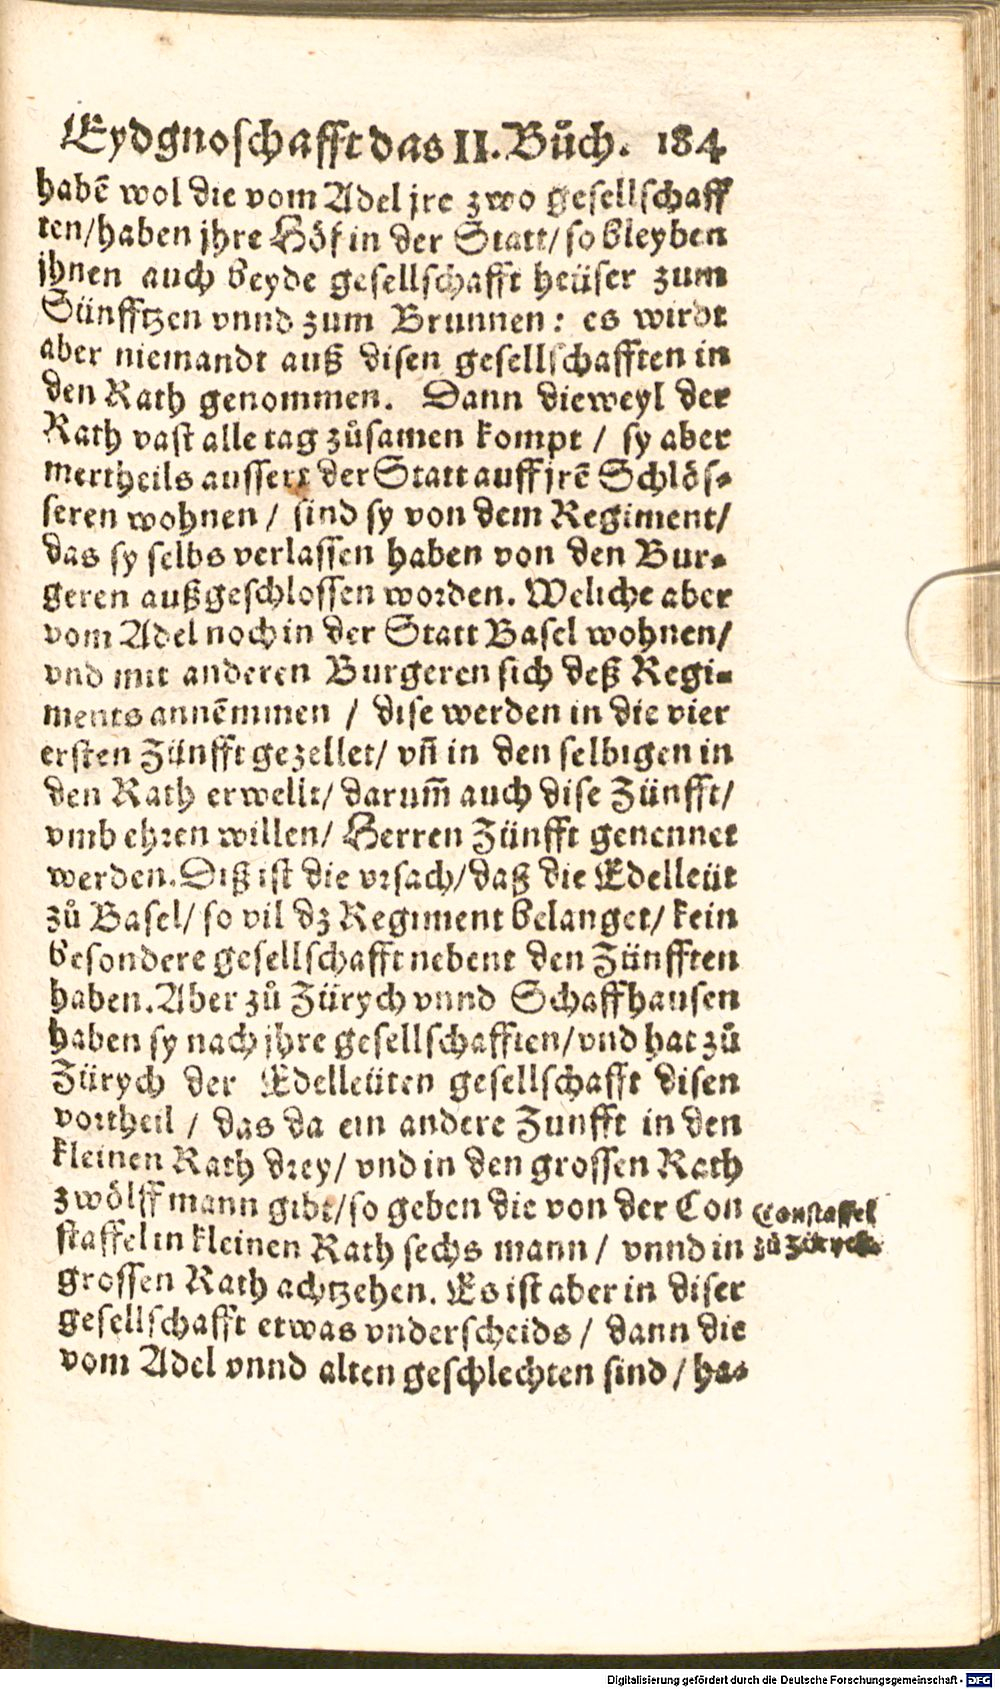 Eydgnoschafft das II. Bůch. 184
habē wol die vom Adel jre zwo gesellschaff
ten/haben jhre Höf in der Statt/ so bleyben
jhnen auch beyde gesellschafft heüser zum
Sünfftzen vnnd zum Brunnen: es wirdt
aber niemandt auß disen gesellschafften in
den Rath genommen. Dann dieweyl der
Rath vast alle tag zůsamen kompt / sy aber
mertheils aussert der Statt auff jrē Schlös-
seren wohnen / sind sy von dem Regiment/
das sy selbs verlassen haben von den Bur-
geren außgeschlossen worden. Weliche aber
vom Adel noch in der Statt Basel wohnen/
vnd mit anderen Burgeren sich deß Regi-
ments annēmmen / dise werden in die vier
ersten Zünfft gezellet/ vñ in den selbigen in
den Rath erwellt/ darum̃ auch dise Zünfft/
vmb ehren willen/ Herren Zünfft genennet
werden. Diß ist die vrsach/ daß die Edelleüt
zů Basel/ so vil dz Regiment belanget/ kein
besondere gesellschafft nebent den Zünfften
haben. Aber zů Zürych vnnd Schaffhausen
haben sy nach jhre gesellschafften/ vnd hat zů
Zürych der Edelleüten gesellschafft disen
vortheil / das da ein andere Zunfft in den
kleinen Rath drey/ vnd in den grossen Rath
zwölff mann gibt/ so geben die von der Con
staffel in kleinen Rath sechs mann / vnnd in
grossen Rath achtzehen. Es ist aber in diser
gesellschafft etwas vnderscheids / dann die
vom Adel vnnd alten geschlechten sind / ha-
Constaffel
zů Zürych.
Digitalisierung gefördert durch die Deutsche Forschungsgemeinschaft - DFG